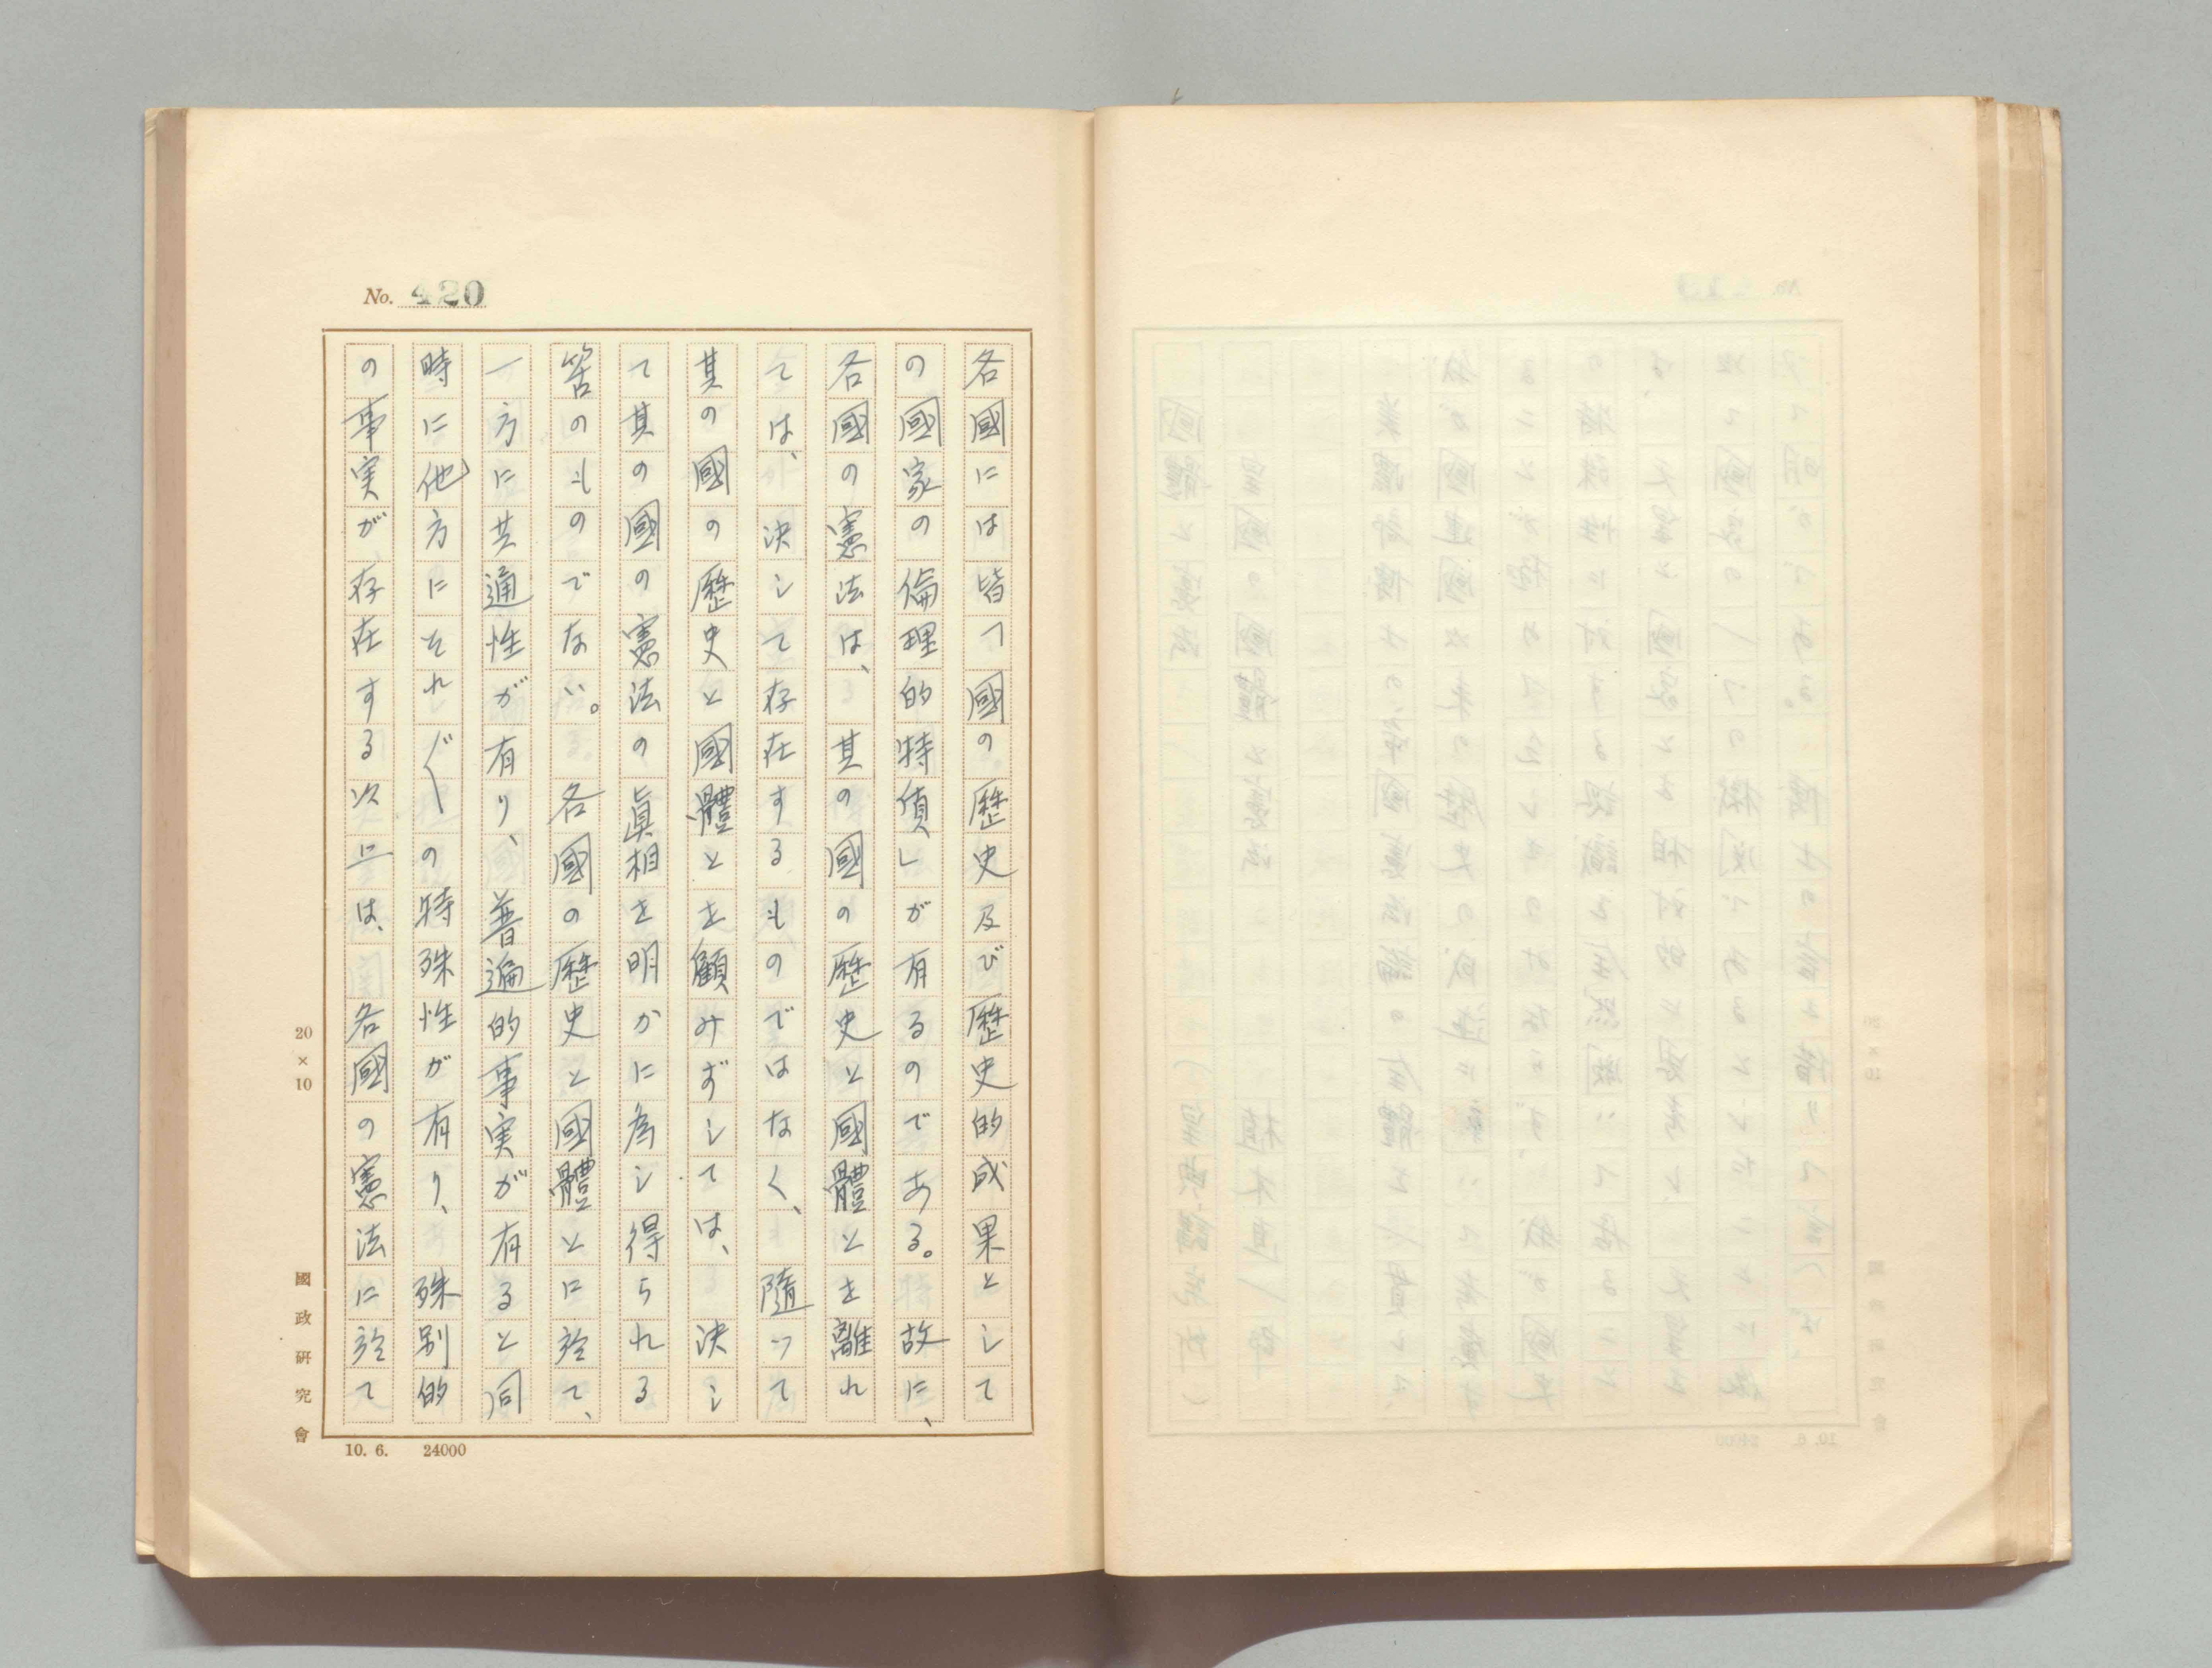 No. 420
各國には皆「國の歷史及び歷史的成果として
の國家の倫理的特質」が有るのである。故に、
各國の憲法は、其の國の歷史と國體とを離れ
ては、決して存在するものではなく、隨つて
其の國の歷史と國體とを顧みずしては、決し
て其の國の憲法の眞相を明かに為し得られる
筈のものでない。各國の歷史と國體とに於て、
一方に共通性が有り、普遍的事実が有ると同
時に他方にそれ〴〵の特殊性が有り、殊別的
の事実が存在する以上は、各國の憲法に於て
20×10
國政硏究會
10. 6. 24000